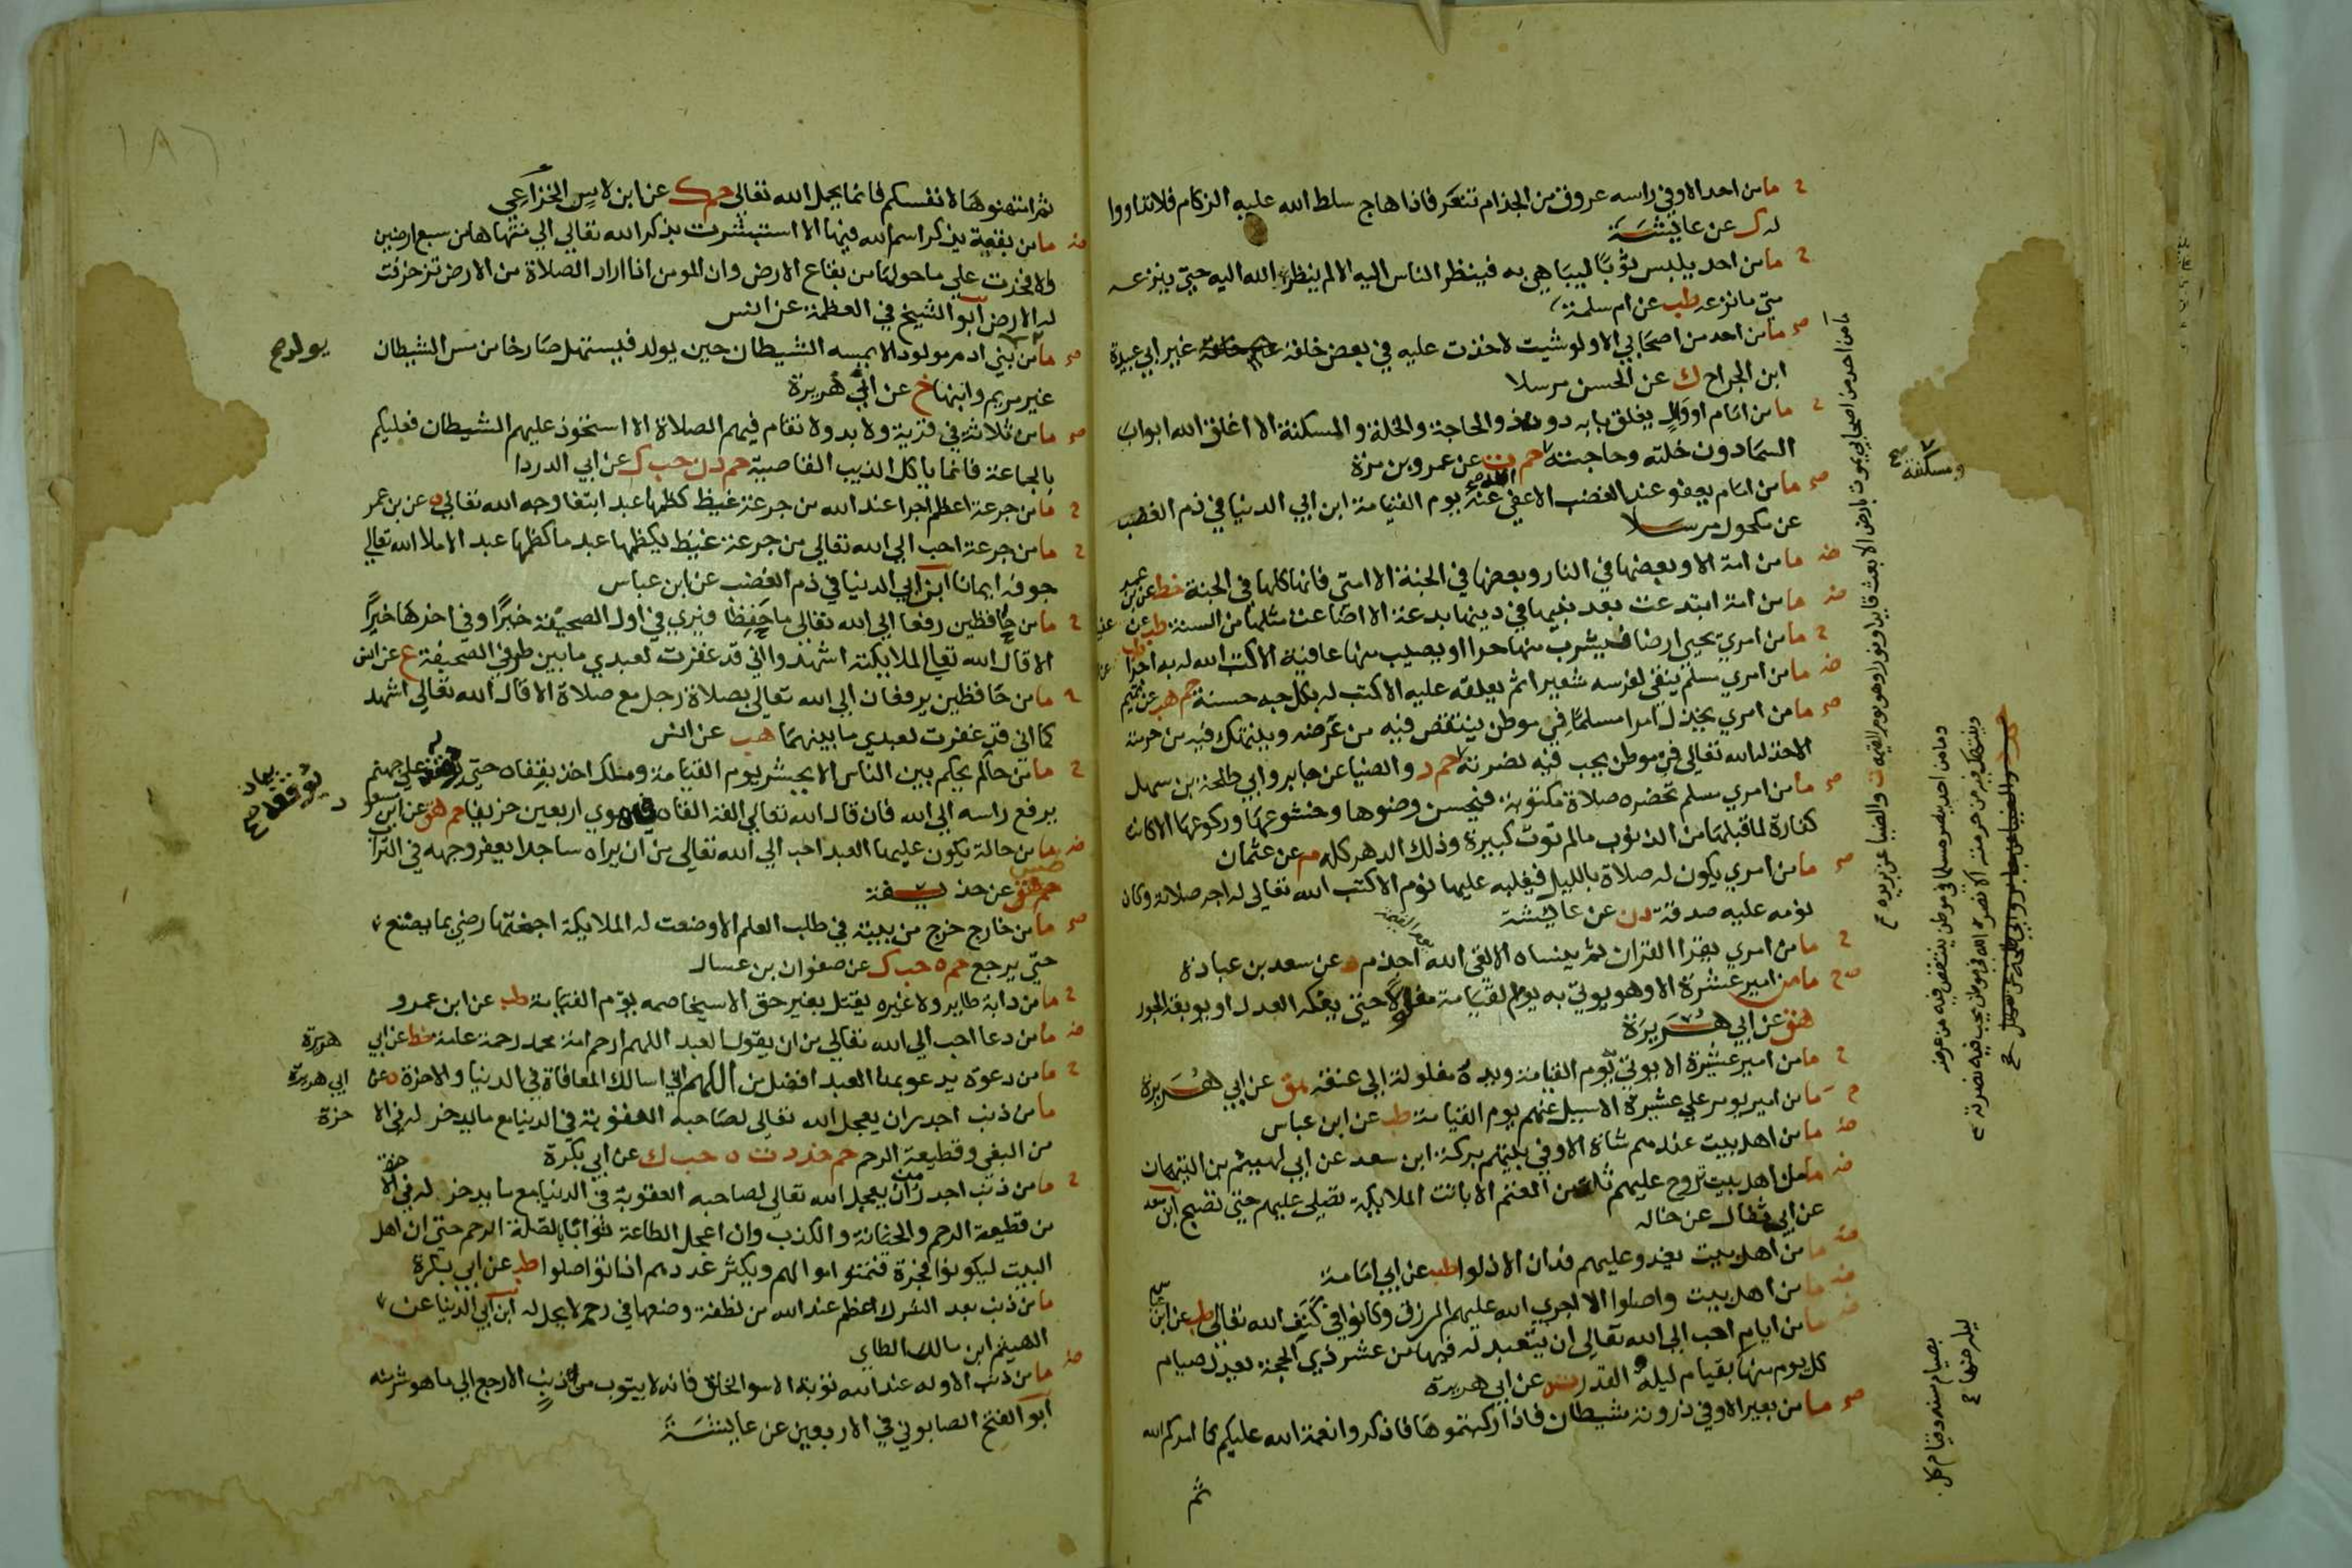 ح مامن احد الا وفي راسه عروق من الجذام تنعر فاذا هاج سلط الله عليه الزكام فلا تداووا
له ك عن عايشة
ح مامن احد يلبس ثوبا ليباهي به فينظر الناس اليه الا لم ينظر الله اليه حتي ينزعه
متي مانزعه طب عن ام سلمة
صح مامن احد من اصحابي الا ولو شيت لاخذت عليه في بعض خلقه غير ابي عبيدة
ابن الجراح ك عن الحسن مرسلا
ح مامن امام او وال يغلق بابه دون ذو الحاجة والخلة والمسكنة الا اغلق الله ابواب
السما دون خلته وحاجته حم ت عن عمرو بن مرة
صح مامن امام يعفو عند الغضب الا عفي الله عنه يوم القيامة ابن ابي الدنيا في ذم الغضب
عن مكحول مرسلا
ضه مامن امة الا وبعضها في النار وبعضها في الجنة الا امتي فانها كلها في الجنة خط عن ابن عمر
ضه مامن امة ابتدعت بعد نبيها في دينها بدعة الا اضاعت مثلها من السنة طب عن
ح مامن امري يحيي ارضا فيشرب منها حرا او يصيب منها عافية الا كتب الله له به اجرا
ضه مامن امري مسلم ينقي لفرسه شعيرا ثم يعلفه عليه الا كتب له بكل حبه حسنة حم هب عن تميم
صح مامن امري يخذل امرا مسلما في موطن ينتقص فيه من عرضه وينتهك فيه من حرمته
الا خذله الله تعالي في موطن يحب فيه نصرته حم د والضيا عن جابر وابي طلحة بن سهل
صح مامن امري مسلم تحضره صلاة مكتوبة فيحسن وضوها وخشوعها وركوعها الا كانت
كفارة لما قبلها من الذنوب مالم توت كبيرة وذلك الدهر كله م عن عثمان
صح مامن امري يكون له صلاة بالليل فيغلبه عليها نوم الا كتب الله تعالي له اجر صلاته وكان
نومه عليه صدقة د ن عن عايشة
ح مامن امري يقرا القران ثم ينساه الا لقي الله يوم القيمة اجذم د عن سعد بن عبادة
صح مامن امير عشرة الا وهو يوتي به يوم القيامة مغلولا حتي يفكه العدل او يوبقه الجور
هق عن ابي هريرة
ح مامن امير عشرة الا يوتي يوم القيامة ويده مغلولة الي عنقه هق عن ابي هريرة
ح مامن امير يومر علي عشيرة الا سيل عنهم يوم القيامة طب عن ابن عباس
ضه مامن اهل بيت عندهم شاة الا وفي بيتهم بركة ابن سعد عن ابي لهيثم بن التيهان
ضه مامن اهل بيت تروح عليهم ثلة من الغنم الا باتت الملايكة تصلي عليهم حتي تصبح ابن سعد
عن ابي ثفال عن خاله
ضه مامن اهل بيت يغدو عليهم فدان الا ذلوا طب عن ابي امامة
ضه مامن اهل بيت واصلوا الا اجري الله عليهم الرزق وكانوا في كنف الله تعالي طب عن ابن
ضه مامن ايام احب الي الله تعالي ان يتعبد له فيها من عشر ذي الحجة يعدل صيام
كل يوم منها بقيام ليلة القدر ت ه عن ابي هريرة
صح مامن بعير الا وفي ذروته شيطان فاذا ركبتموها فاذكروا نعمة الله عليكم كما امركم الله
ثم
مامن احد من اصحابي يموت بارض الا بعث قايدا ونورا لهم يوم القيمة ت والضيا عن بريدة صح
ومسكنته صح
ومامن احد ينصر مسلما في موطن ينتقص فيه من عرضه
وينتهك فيه من حرمته الا نصره الله في موطن يحب فيه نصرته
حم د والضيا عن جابر وابي طلحة بن سهل صح
بصيام سنة وقيام كل
ليلة منها صح
١٨٦
ثم امتهنوها لانفسكم فانما يحمل الله تعالي حم ك عن ابن لاس الخزاعي
ضه مامن بقعة يذكر اسم الله فيها الا استبشرت بذكر الله تعالي الي منتهاها من سبع ارضين
والا فخرت علي ماحولها من بقاع الارض وان المومن اذا اراد الصلاة من الارض تزخرفت
له الارض ابو الشيخ في العظمة عن انس
صح مامن بني ادم مولود الا يمسه الشيطان حين يولد فيستهل صارخا من مس الشيطان
يولد صح
غير مريم وابنها خ عن ابي هريرة
صح مامن ثلاثة في قرية ولا بدو لا تقام فيهم الصلاة الا استحوذ عليهم الشيطان فعليكم
بالجماعة فانما ياكل الذيب القاصية حم د ن حب ك عن ابي الدردا
ح مامن جرعة اعظم اجرا عند الله من جرعة غيظ كظمها عبد ابتغا وجه الله تعالي ه عن بن عمر
ح مامن جرعة احب الي الله تعالي من جرعة غيظ يكظمها عبد ماكظمها عبد الا ملا الله تعالي
جوفه ايمانا ابن ابي الدنيا في ذم الغضب عن ابن عباس
ح مامن حافظين رفعا الي الله تعالي ماحفظا فيري في اول الصحيفة خيرا وفي اخرها خيرا
الا قال الله تعالي لملايكته اشهدوا اني قد غفرت لعبدي مابين طرفي الصحيفة ع عن انس
ح مامن حافظين يرفعان الي الله تعالي بصلاة رجل مع صلاة الا قال الله تعالي اشهد
كما اني قد غفرت لعبدي مابينهما هب عن انس
ح مامن حاكم يحكم بين الناس الا يحشر يوم القيامة وملك اخذ بقفاه حتي يوقفه علي جهنم
ثم يرفع راسه الي الله فان قال الله تعالي القه القاه في مهوي اربعين خريفا حم هق عن ابن مسعود
يوقفه صح
ضه مامن حالة يكون عليها العبد احب الي الله تعالي من ان يراه ساجدا يعفر وجهه في التراب
طس عن حذيفة
صح مامن خارج خرج من بيته في طلب العلم الا وضعت له الملايكة اجنحتها رضي بما يصنع
حتي يرجع حم ه حب ك عن صفوان بن عسال
ح مامن دابة طاير ولا غيره يقتل بغير حق الا سيخاصمه يوم القيامة طب عن ابن عمرو
ضه مامن دعا احب الي الله تعالي من ان يقول العبد اللهم ارحم امة محمد رحمة عامة خط عن ابي هريرة
ح مامن دعوة يدعو بها العبد افضل من اللهم اني اسالك المعافاة في الدنيا والاخرة ه عن ابي هريرة
مامن ذنب اجدر ان يعجل الله تعالي لصاحبه العقوبة في الدنيا مع مايدخر له في الا خرة
من البغي وقطيعة الرحم حم خد د ت ه حب ك عن ابي بكرة
ح مامن ذنب اجدر ان يعجل الله تعالي لصاحبه العقوبة في الدنيا مع مايدخر له في الا خرة
من قطيعة الرحم والخيانة والكذب وان اعجل الطاعة ثوابا لصلة الرحم حتي ان اهل
البيت ليكونوا فجرة فتنموا اموالهم ويكثر عددهم اذا تواصلوا طب عن ابي بكرة
مامن ذنب بعد الشرك اعظم عند الله من نطفة وضعها في رحم لا يحل له ابن ابي الدنيا عن
الهيثم ابن مالك الطاي
ضه مامن ذنب الا وله عند الله توبة الا سو الخلق فانه لا يتوب من ذنب الا رجع الي ماهو شر منه
ابو الفتح الصابوني في الاربعين عن عايشة